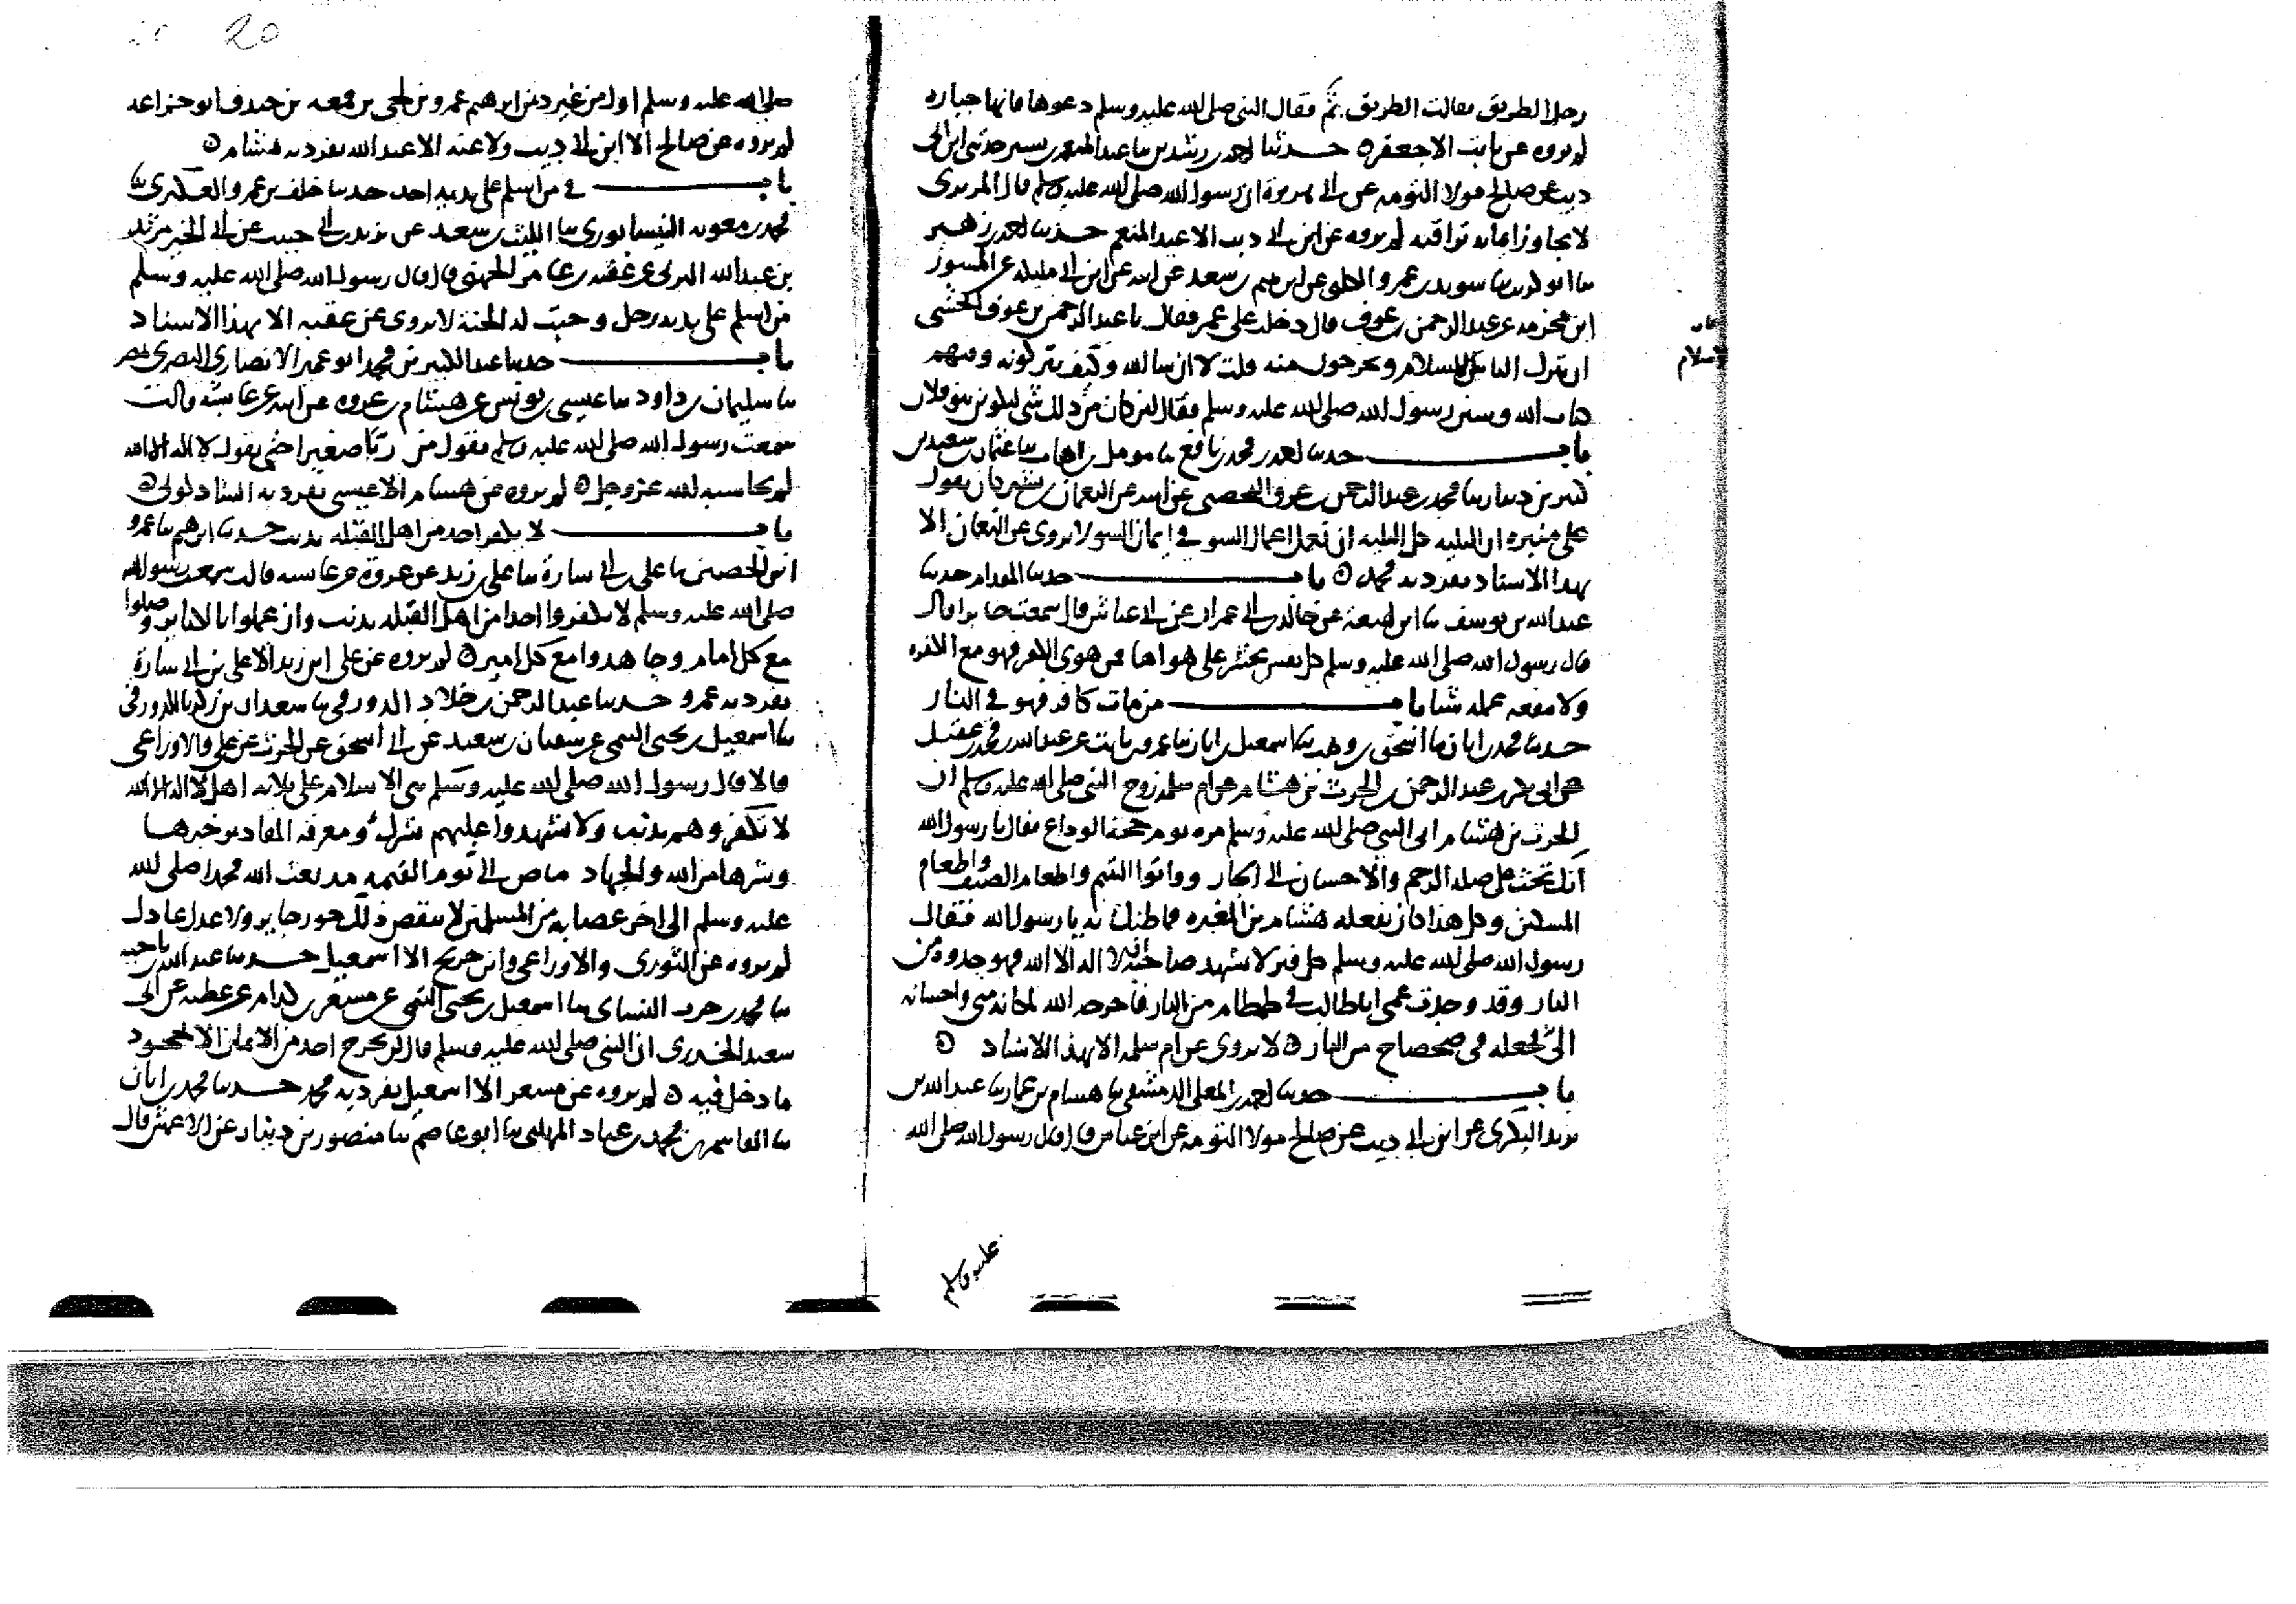 رجل الطريق فقالت الطريق ثم فقال النبي صلى الله عليه وسلم دعوها فانها جباره
لم يروه عن ثابت الا جعفر ه حدثنا احمد بن رشدين ثنا عبد المنعم بن بشير حدثني ابن ابي
ديب عن صالح مولا التومه عن ابي هريرة ان رسول الله صلى الله عليه وسلم قال المر يرى
لا يجاوز ايمانه تراقيه لم يروه عن ابن ابي ديب الا عبد المنعم حدثنا احمد بن زهير
ثنا ابو كريب ثنا سويد بن عمرو الكلبي عن ابرهيم بن سعد عن ابيه عن ابن ابي مليكه عن المسور
ابن مخرمه عن عبد الرحمن بن عوف قال دخلت على عمر فقال يا عبد الرحمن بن عوف اتخشى
ان يترك الناس الاسلام ويخرجون منه قلت لا ان شا الله وكيف يتركونه وفيهم
كتاب الله وسنن رسول الله صلى الله عليه وسلم فقال لين كان من ذلك شي ليكونن بنو فلان
باب حدثنا احمد بن محمد بن نافع ثنا مومل بن اهاب ثنا عثمان بن سعيد بن
كثير بن دينار ثنا محمد بن عبد الرحمن بن عرق الحمصي عن ابيه عن النعمان بن بشير كان يقول
على منبره ان البليه كل البليه ان تعمل اعمال السو في ايمان السو لا يروى عن النعمان الا
بهذا الاسناد تفرد به محمد ه باب حدثنا المقدام حدثنا
عبد الله بن يوسف ثنا ابن لهيعة عن خالد بن ابي عمران عن ابي عياش قال سمعت جابرا قال
قال رسول الله صلى الله عليه وسلم كل نفس تحشر على هواها فمن هوى الكفر فهو مع الكفره
ولا ينفعه عمله شيا باب من مات كافر فهو في النار
حدثنا محمد بن ابان ثنا اسحق بن وهب ثنا اسمعيل بن ابان ثنا عمرو بن ثابت عن عبد الله بن محمد بن عقيل
عن ابي بكر بن عبد الرحمن بن الحرث بن هشام عن ام سلمه زوج النبي صلى الله عليه وسلم ان
الحرث بن هشام اتى النبي صلى الله عليه وسلم مره يوم حجة الوداع فقال يا رسول الله
انك تحث على صله الرحم والاحسان الى الجار وواتوا اليتيم واطعام الضيف واطعام
المسكين وكل هذا كان يفعله هشام بن المغيره فما ظنك به يا رسول الله فقال
رسول الله صلى الله عليه وسلم كل قبر لا يشهد صاحبه ان لا اله الا الله فهو جدوه من
النار وقد وجدت عمى اباطالب في طمطام من النار فاخرجه الله لمكانه مني واحسانه
الي فجعله في ضحضاح من النار ه لا يروى عن ام سلمه الا بهذا الاسناد ه
باب حدثنا احمد بن المعلى الدمشقي ثنا هشام بن عمار ثنا عبد الله بن
يزيد البكرى عن ابن ابي ديب عن صالح مولا التومه عن ابن عباس قال قال رسول الله صلى الله
عليه وسلم
20
صلى الله عليه وسلم اول من غير دين ابرهيم عمرو بن لحى بن قمعه بن خندف ابو خزاعه
لم يروه عن صالح الا ابن ابي ديب ولا عنه الا عبد الله تفرد به هشام ه
باب في من اسلم على يديه احد حدثنا خلف بن عمرو العكبرى ثنا
محمد بن معويه النيسابورى ثنا الليث بن سعد عن يزيد بن ابي حبيب عن ابي الخير مرثد
بن عبد الله اليزني عن عقبه بن عامر الجهني قال قال رسول الله صلى الله عليه وسلم
من اسلم على يديه رجل وجبت له الجنة لا يروى عن عقبه الا بهذا الاسناد
باب حدثنا عبد الكبير بن محمد ابو عمير الانصاري البصرى بمصر
ثنا سليمان بن داود ثنا عيسى بن يونس عن هشام بن عروه عن ابيه عن عايشة قالت
سمعت رسول الله صلى الله عليه وسلم يقول من ربا صغيرا حتى يقول لا اله الا الله
لم يحاسبه الله عز وجل ه لم يروه عن هشام الا عيسى تفرد به الشاذكوني ه
باب لا يكفر احد من اهل القبله بذنب حدثنا ابرهيم ثنا عمرو
ابن الحصين ثنا على بن ابي سارة ثنا على بن زيد عن عروة عن عايشه قالت سمعت رسول الله
صلى الله عليه وسلم لا تكفروا احدا من اهل القبله بذنب وان عملوا بالكباير وصلوا
مع كل امام وجاهدوا مع كل امير ه لم يروه عن على ابن زيد الا على بن ابي سارة
تفرد به عمرو حدثنا عبد الرحمن بن خلاد الدورقي ثنا سعدان بن زكريا الدورقي
ثنا اسمعيل بن يحيى التيمي عن سفيان بن سعيد عن ابي اسحق عن الحرث عن علي والاوزاعي
قالا قال رسول الله صلى الله عليه وسلم بني الاسلام على ثلاثه اهل لا اله الا الله
لا تكفروهم بذنب ولا تشهدوا عليهم بشرك ومعرفة المقادير خيرها
وشرها من الله والجهاد ماض الى يوم القيمه مذ بعث الله محمدا صلى الله
عليه وسلم الى اخر عصابه من المسلمين لا ينقص ذلك جور جاير ولا عدل عادل
لم يروه عن الثورى والاوزاعي وابن جريج الا اسمعيل حدثنا عبد الله بن ناجيه
ثنا محمد بن حرب النشاي ثنا اسمعيل بن يحيى التيمي عن مسعر بن كدام عن عطيه عن ابي
سعيد الخدرى ان النبي صلى الله عليه وسلم قال لن يخرج احد من الايمان الا بجحود
ما دخل فيه ه لم يروه عن مسعر الا اسمعيل تفرد به محمد حدثنا محمد بن ابان
ثنا القاسم بن محمد بن عباد المهلبي ثنا ابو عاصم ثنا منصور بن دينار عن الاعمش قال